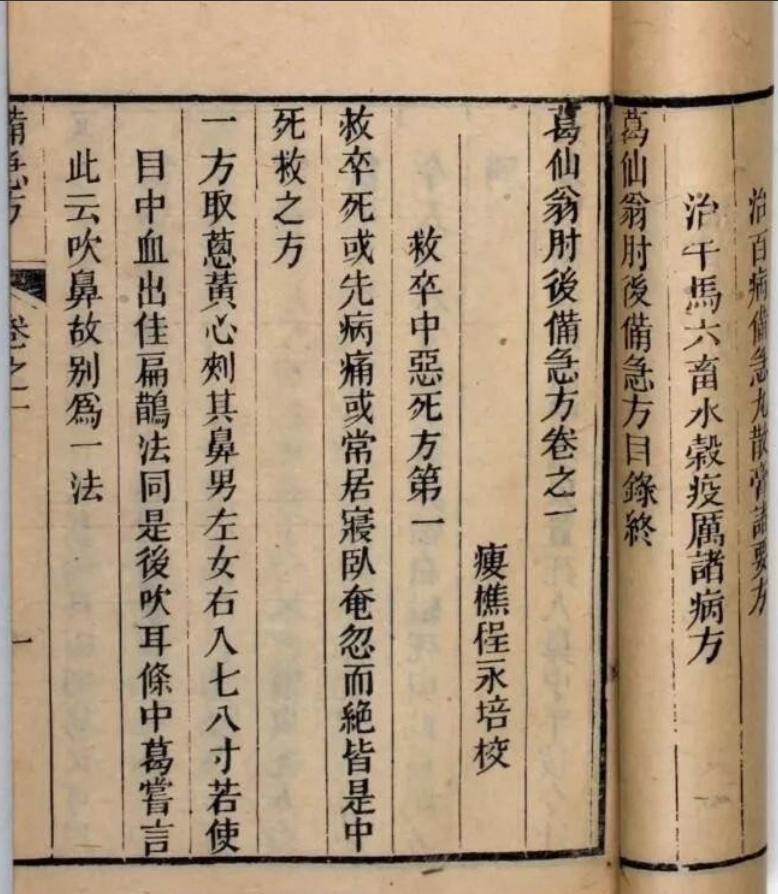 治百病備急丸散膏諸要方
治牛馬六畜水穀疫厲諸病方
葛仙翁肘後備急方目錄終
葛仙翁肘後備急方卷之一
瘦樵程永培校
救卒中惡死方第一
救卒死或先病痛或常居寢臥奄忽而絕皆是中
死救之方
一方取蔥黃心刺其鼻男左女右入七八寸若使
目中血出佳扁鵲法同是後吹耳條中葛嘗言
此云吹鼻故別為一法
備急方
卷之一
一